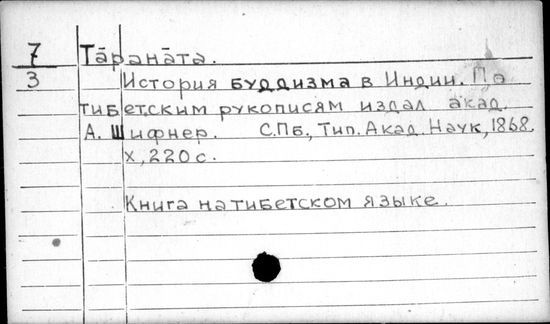 7 Тāранāта.
3 История буддизма в Индии. По
тибетским рукописям издал акад.
А. Шифнер. С.Пб., Тип. Акад. Наук, 1868.
X, 220 с.
Книга на тибетском языке.